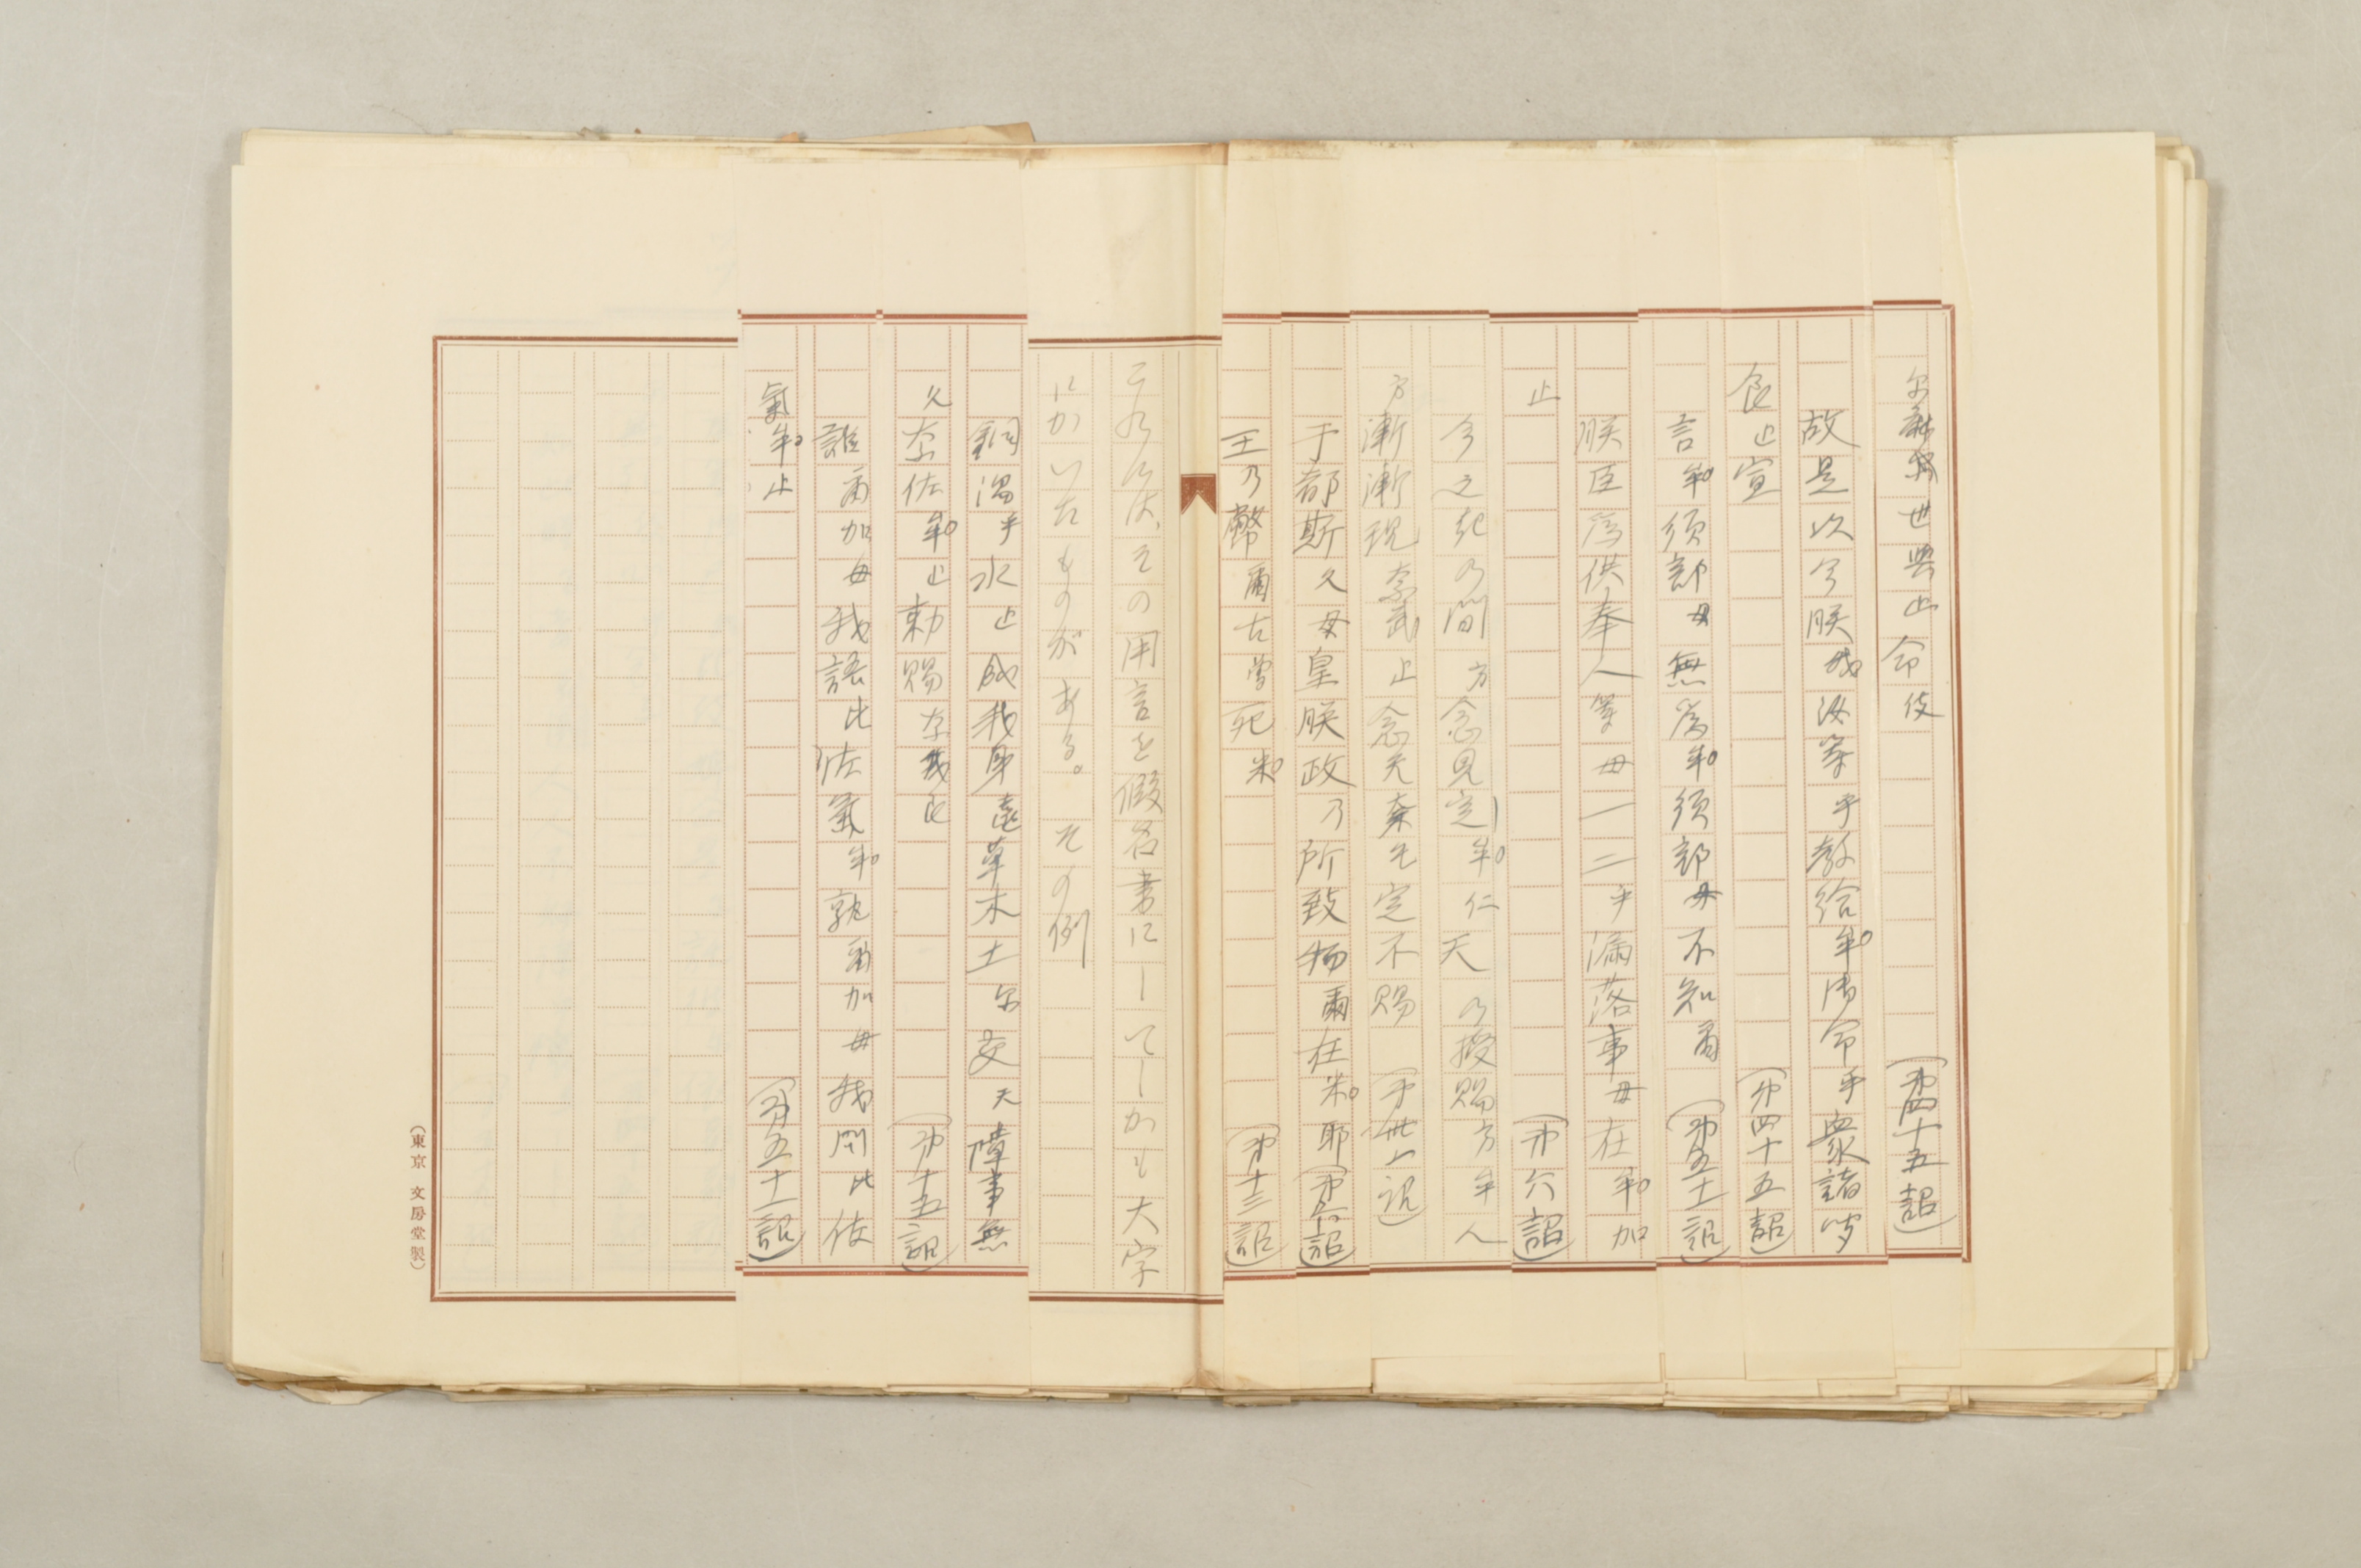 故是以今朕我汝等乎教給牟御命乎衆諸聞
食止宣 (第四十五詔)
言牟須部母無為牟須部母不知爾 (第五十一詔)
朕臣為供奉人等母一二乎漏落事母在牟加
止 (第六詔)
今之紀乃間方念見定牟仁天乃授賜方牟人
方漸漸現奈武止念天奈毛定不賜 (第卅一詔)
于都斯久母皇朕政乃所致物爾在米耶 (第六詔)
王乃幣爾古曽死米 (第十三詔)
これらは、その用言を假名書にしてしかも大字
にかいたものがある。その例
銅湯乎水止成我身遠草木土尔交天障事無
久奈佐牟止勅賜奈我良 (第十五詔)
誰爾加母我語比佐氣牟孰爾加母我問比佐
氣牟止 (第五十一詔)
(東京 文房堂製)